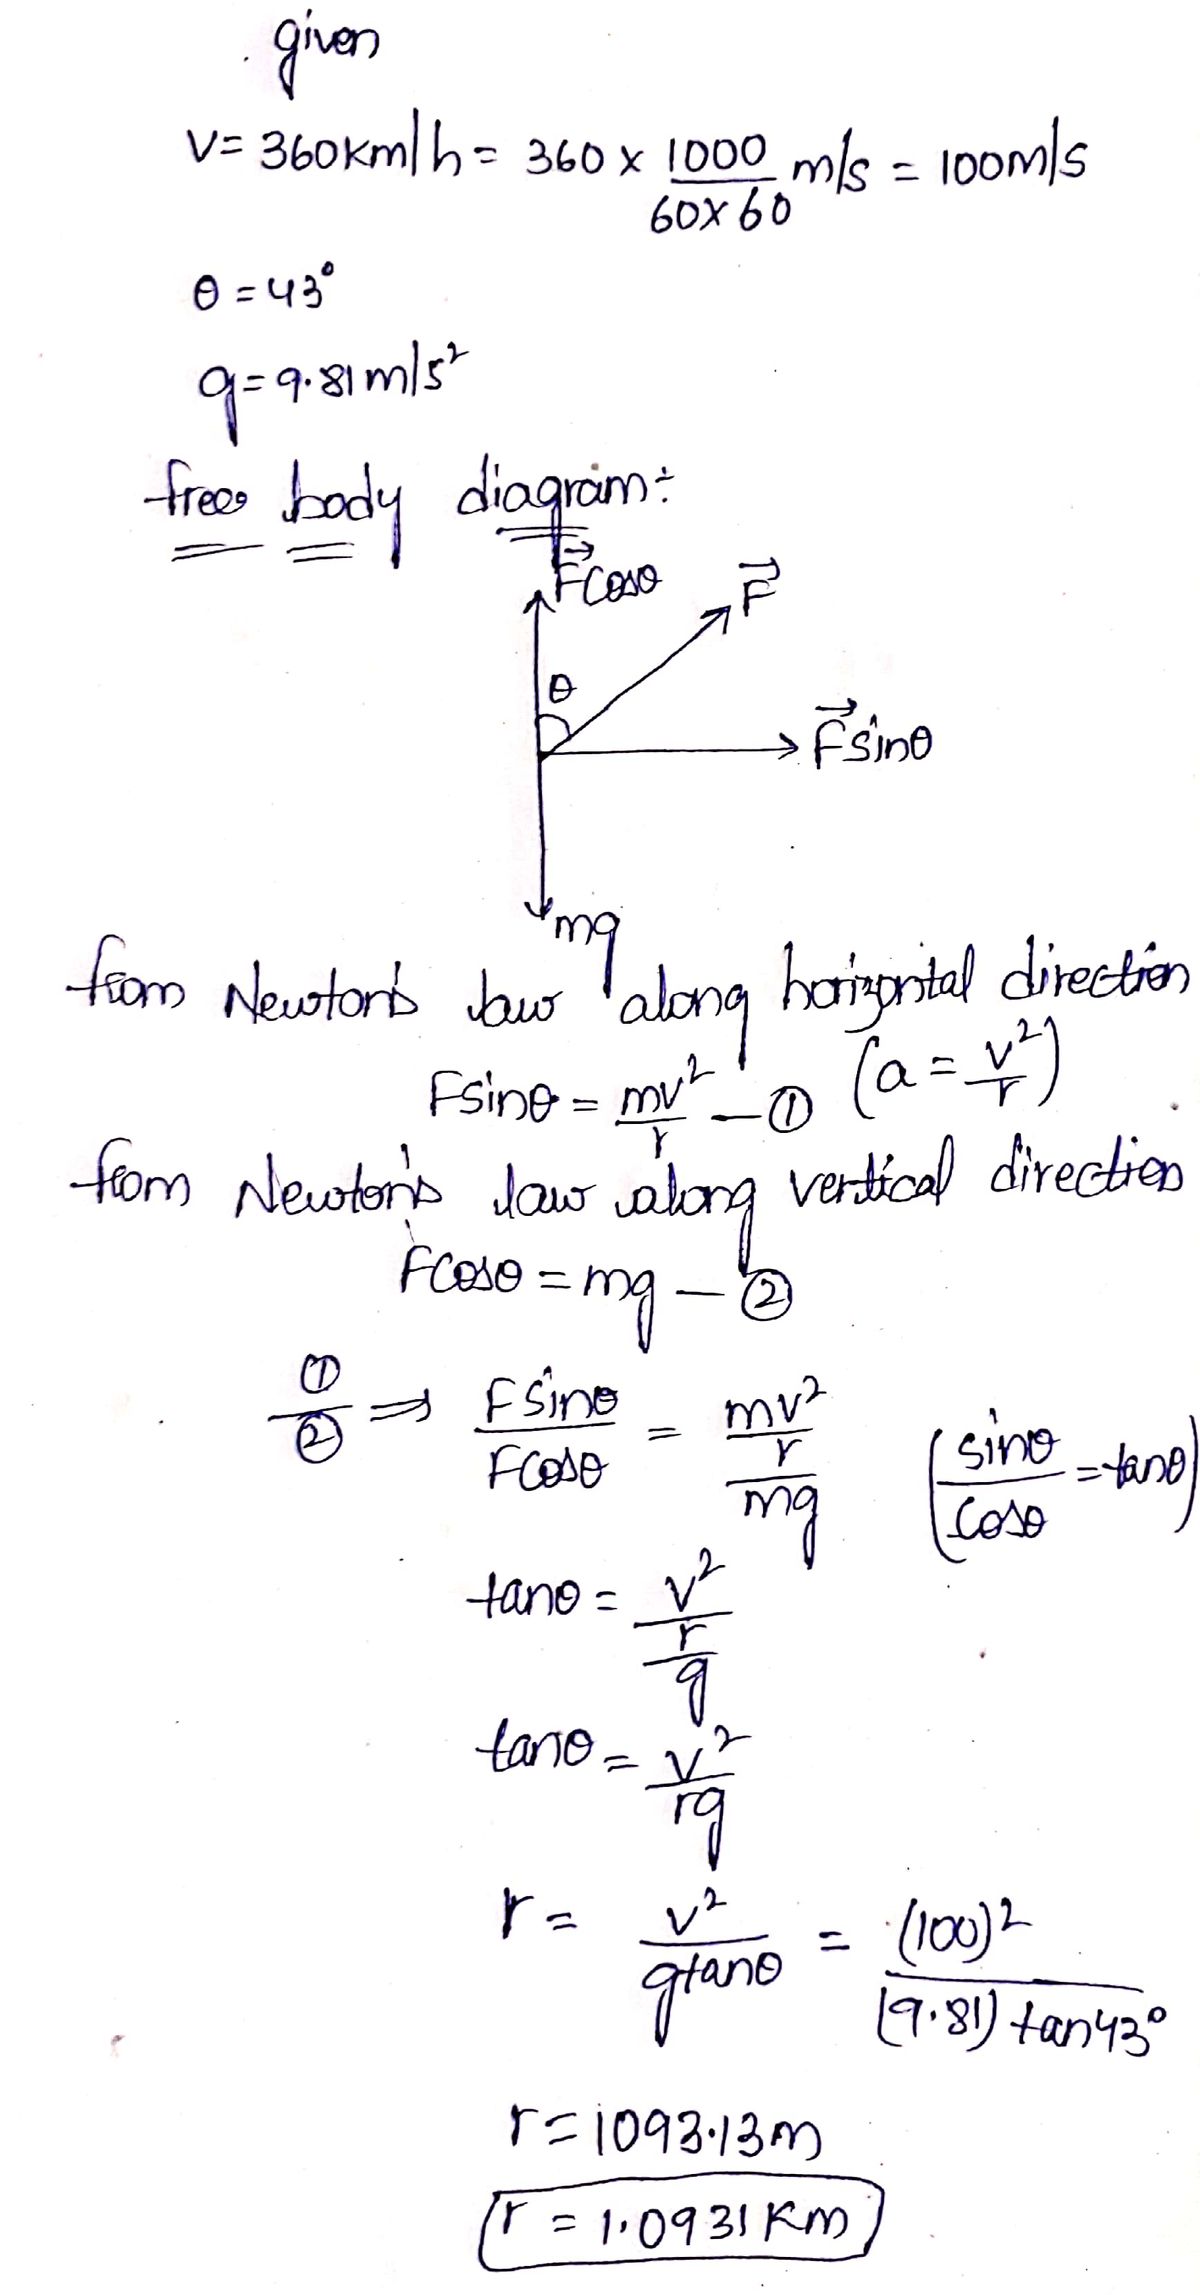 given
V = 360 km/h = 360 × 1000/60×60 m/s = 100 m/s
θ = 43°
g = 9.81 m/s²
free body diagram:
F⃗cosθ
F⃗
θ
F⃗sinθ
mg
from Newton's law along horizontal direction
Fsinθ = mv²/r — ① (a = v²/r)
from Newton's law along vertical direction
Fcosθ = mg — ②
①/② ⇒ Fsinθ/Fcosθ = mv²/r/mg (sinθ/cosθ = tanθ)
tanθ = v²/r/g
tanθ = v²/rg
r = v²/gtanθ = (100)²/(9.81) tan43°
r = 1093.13m
r = 1.0931 Km